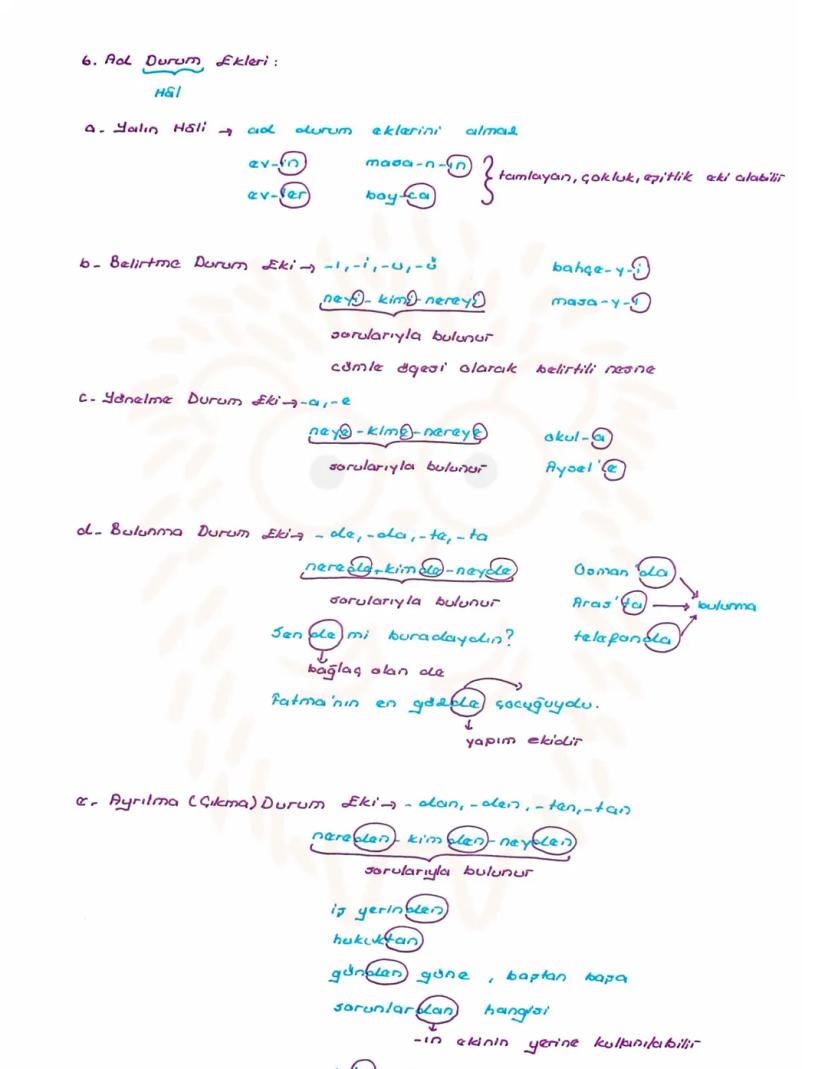 6. Ad Durum Ekleri:
Hâl
a- Yalın Hâli → ad durum eklerini almaz
ev-in masa-n-ın
ev-ler boy-ca
tamlayan, çokluk, eşitlik eki alabilir
b- Belirtme Durum Eki → -ı, -i, -u, -ü bahçe-y-i
neyi- kimi- nereyi masa-y-ı
sorularıyla bulunur
cümle ögesi olarak belirtili nesne
c- Yönelme Durum Eki → -a, -e
neye - kime - nereye okul-a
sorularıyla bulunur Aysel'e
d- Bulunma Durum Eki → -de, -da, -te, -ta
nerede - kimde - neyde Osman'da
sorularıyla bulunur Aras'ta → bulunma
Sen de mi buradaydın? telefonda
bağlaç olan de
Fatma'nın en gözde çocuğuydu.
yapım ekidir
e- Ayrılma (Çıkma) Durum Eki → -dan, -den, -ten, -tan
nereden- kimden- neyden
sorularıyla bulunur
iş yerinden
hukuktan
günden güne, baştan başa
sorunlardan hangisi
-ın ekinin yerine kullanılabilir